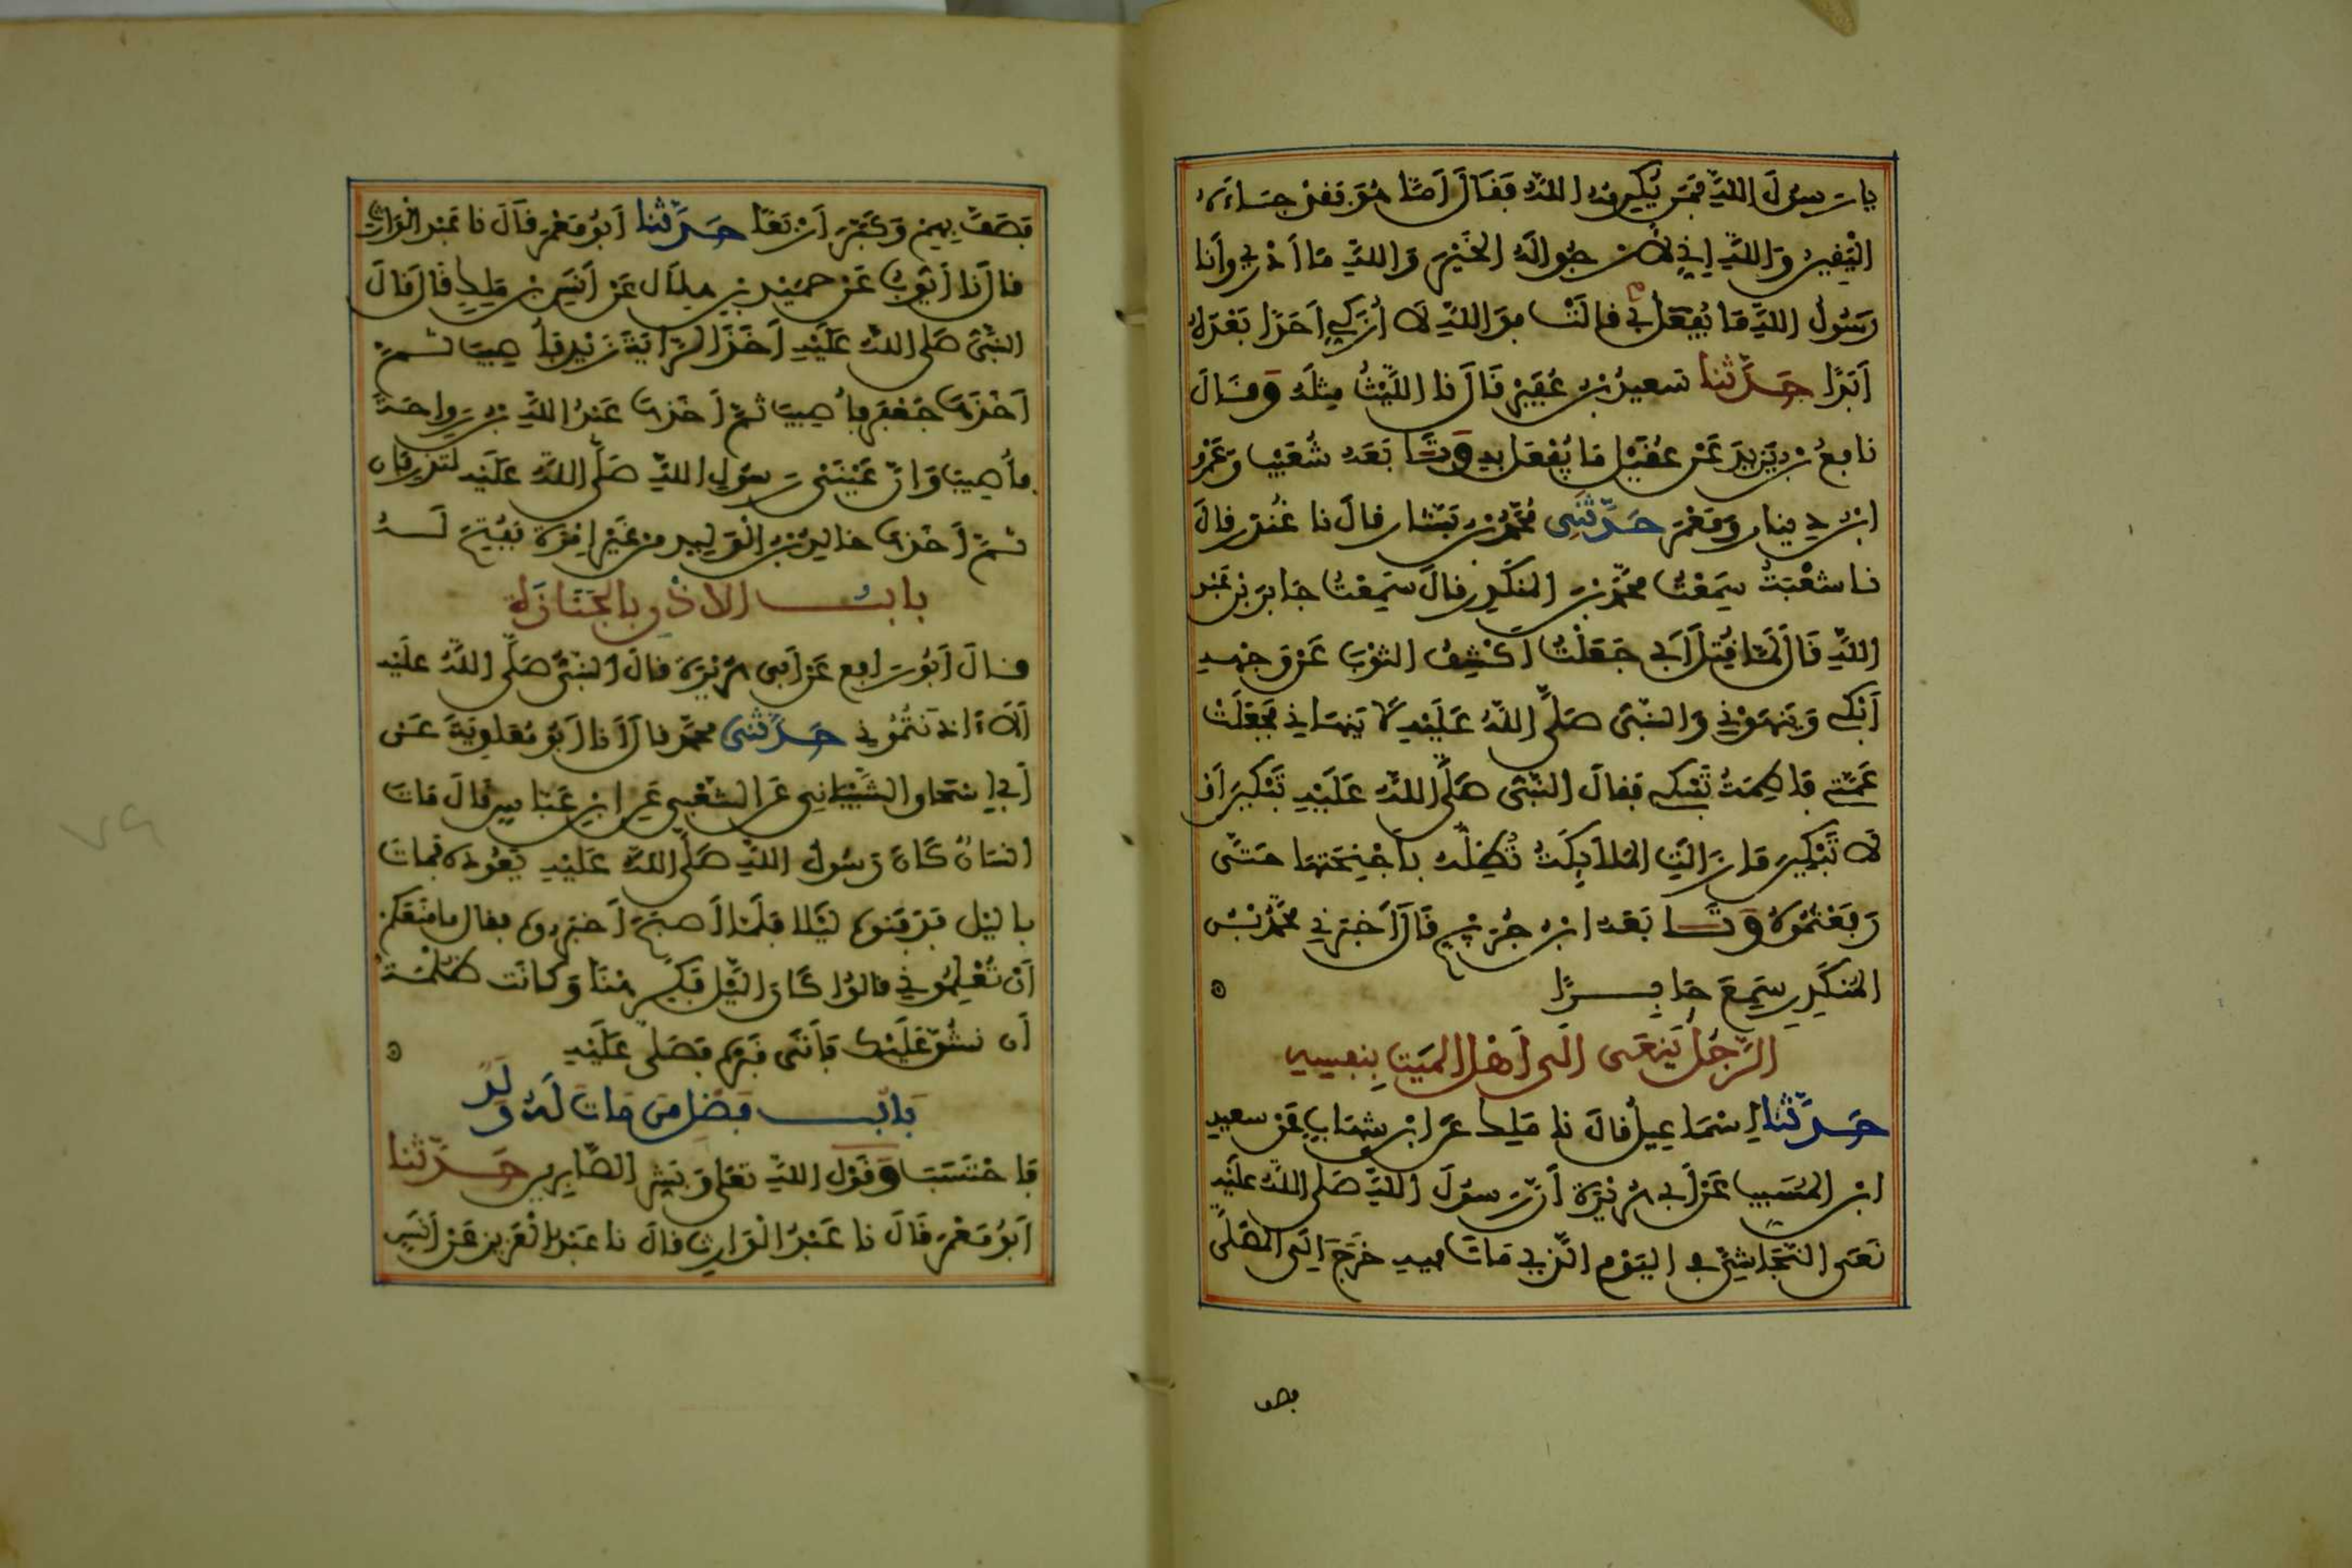 يا رسول الله فمن يكرمه الله فقال أما هو فقد جاءه
اليقين والله إني لأرجوا له الخير والله ما أدري وأنا
رسول الله ما يفعل بي قالت فوالله لا أزكي أحدا بعده
أبدا حدثنا سعيد بن عفير قال نا الليث مثله وقال
نافع بن يزيد عن عقيل ما يفعل به وتابعه شعيب وعمرو
ابن دينار ومعمر حدثني محمد بن بشار قال نا غندر قال
نا شعبة سمعت محمد بن المنكدر قال سمعت جابر بن عبد
الله قال لما قتل أبي جعلت أكشف الثوب عن وجهه
أبكي وينهوني والنبي صلى الله عليه لا ينهاني فجعلت
عمتي فاطمة تبكي فقال النبي صلى الله عليه تبكين أو
لا تبكين ما زالت الملائكة تظله بأجنحتها حتى
رفعتموه وتابعه ابن جريج قال أخبرني محمد بن
المنكدر سمع جابرا
الرجل ينعى إلى أهل الميت بنفسه
حدثنا إسماعيل قال نا ملك عن ابن شهاب عن سعيد
ابن المسيب عن أبي هريرة أن رسول الله صلى الله عليه
نعى النجاشي في اليوم الذي مات فيه خرج إلى المصلى
فصف
فصف بهم وكبر أربعا حدثنا أبو معمر قال نا عبد الوارث
قال نا أيوب عن حميد بن هلال عن أنس بن ملك قال قال
النبي صلى الله عليه أخذ الراية زيد فأصيب ثم
أخذها جعفر فأصيب ثم أخذها عبد الله بن رواحة
فأصيب وإن عيني رسول الله صلى الله عليه لتذرفان
ثم أخذها خالد بن الوليد من غير إمرة ففتح له
باب الإذن بالجنازة
وقال أبو رافع عن أبي هريرة قال النبي صلى الله عليه
ألا آذنتموني حدثني محمد قال أنا أبو معاوية عن
أبي إسحاق الشيباني عن الشعبي عن ابن عباس قال مات
إنسان كان رسول الله صلى الله عليه يعوده فمات
باليل فدفنوه ليلا فلما أصبح أخبروه فقال ما منعكم
أن تعلموني قالوا كان اليل فكره‍نا وكانت ظلمة
أن نشق عليك فأتى قبره فصلى عليه
باب فضل من مات له ولد
فاحتسب وقول الله تعلى وبشر الصابرين حدثنا
أبو معمر قال نا عبد الوارث قال نا عبد العزيز عن أنس